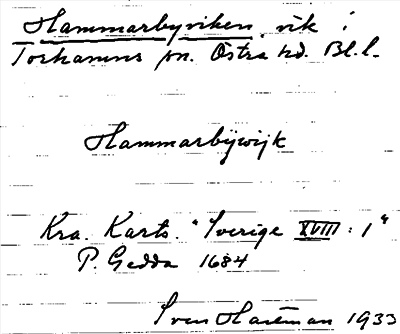 Hammarbyviken, vik i
Torhamns sn. Östra hd. Bl.l.
Hammarbÿwijk
Kra. Kartv. "Sverige XVIII:1"
P. Gedda 1684
Sven Hartman 1933